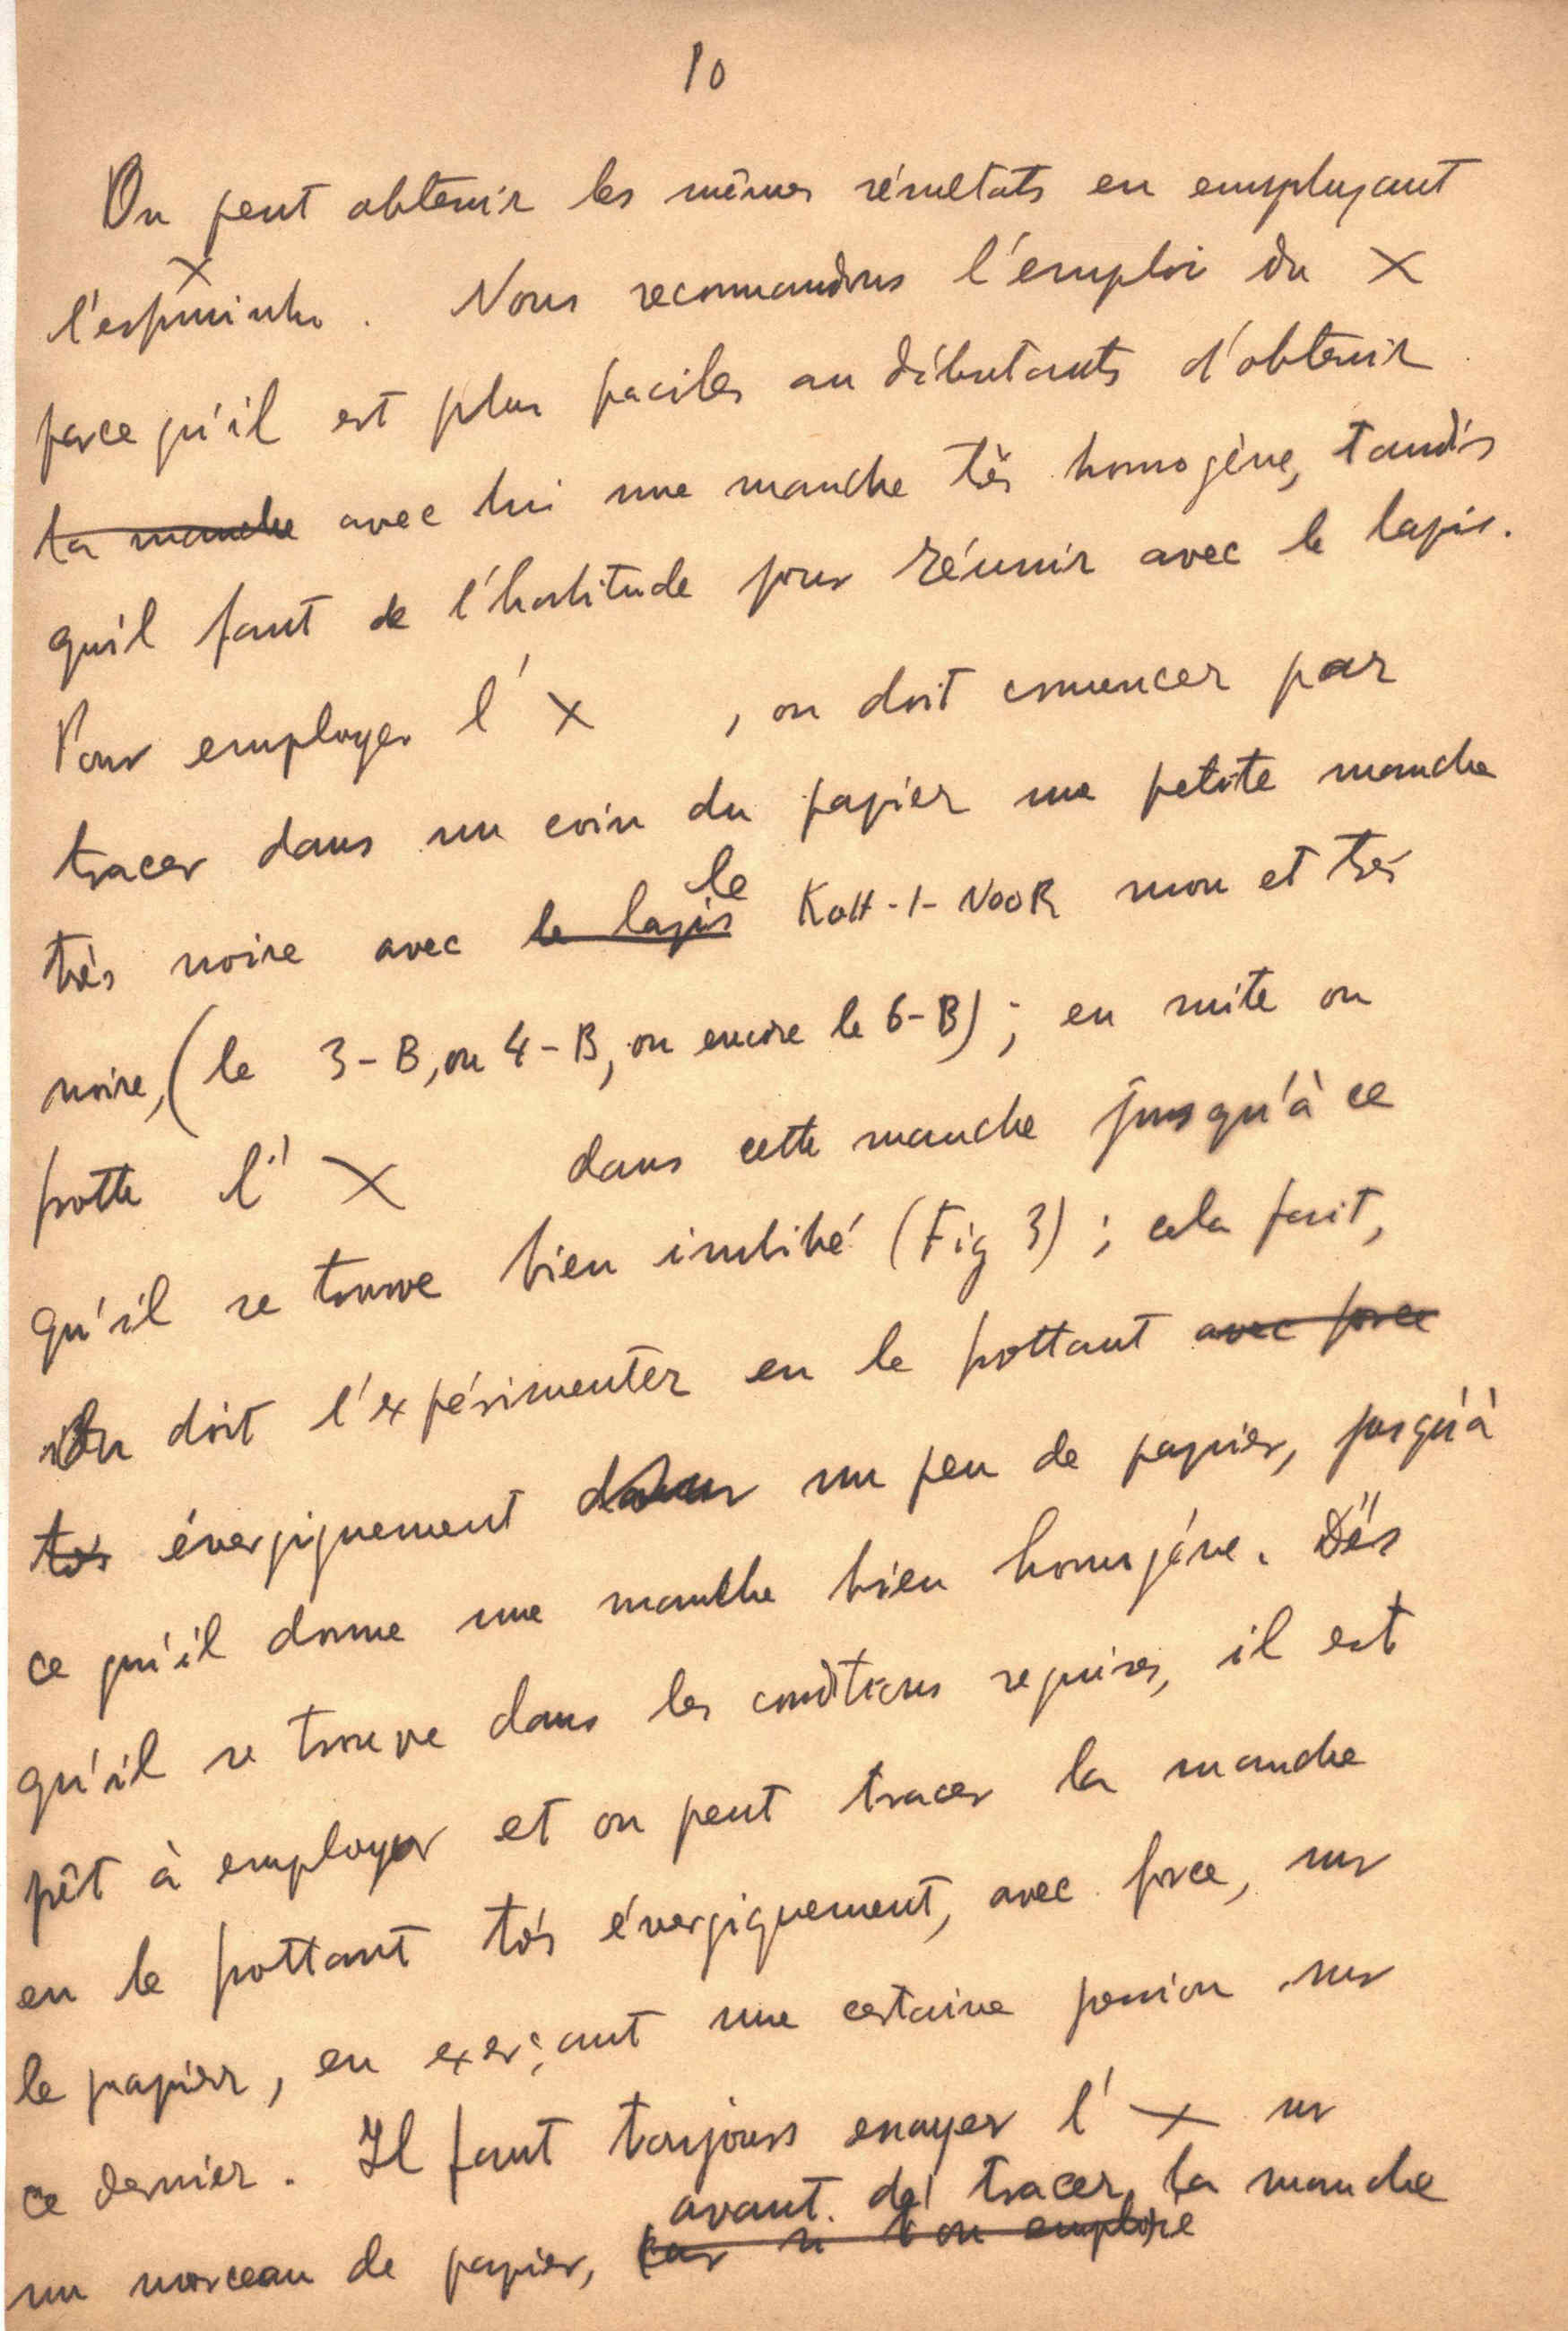 10
On peut obtenir les mêmes résultats en employant
x
l'espuinho. Nous recommandons l'emploi du X
parce qu'il est plus faciles au débutants d'obtenir
la manche avec lui une manche très homogène, tandis
qu'il faut de l'habitude pour réunir avec le lapis.
Pour employer l' X , on doit comencer par
tracer dans un coin du papier une petite manche
le
très noire avec le lapis KOH-I-NOOR mou et très
noire, (le 3-B, ou 4-B, ou encore le 6-B) ; en suite on
frotte l' X dans cette manche jusqu'à ce
qu'il se trouve bien imbibé (Fig 3) ; cela fait,
on doit l'expérimenter en le frottant avec force
très énergiquement dans un peu de papier, jusqu'à
ce qu'il donne une manche bien homogène. Dès
qu'il se trouve dans les conditions requises, il est
prêt à employer et on peut tracer la manche
en le frottant très énergiquement, avec force, sur
le papier, en exerçant une certaine pression sur
ce dernier. Il faut toujours essayer l' X sur
avant de tracer la manche
un morceau de papier, car si l'on emploie